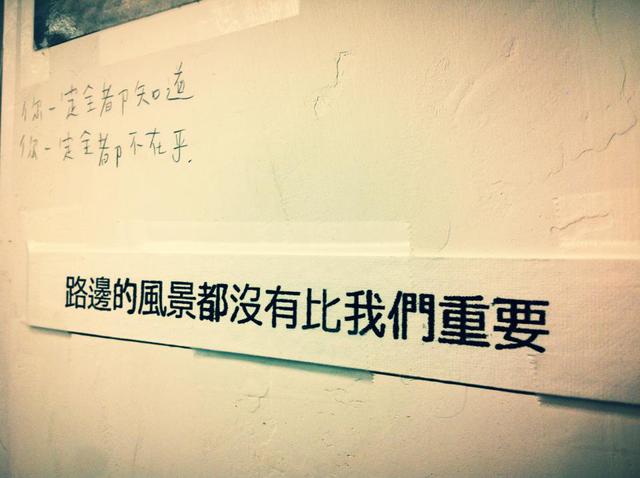 你一定全都知道
你一定全都不在乎.
路邊的風景都沒有比我們重要